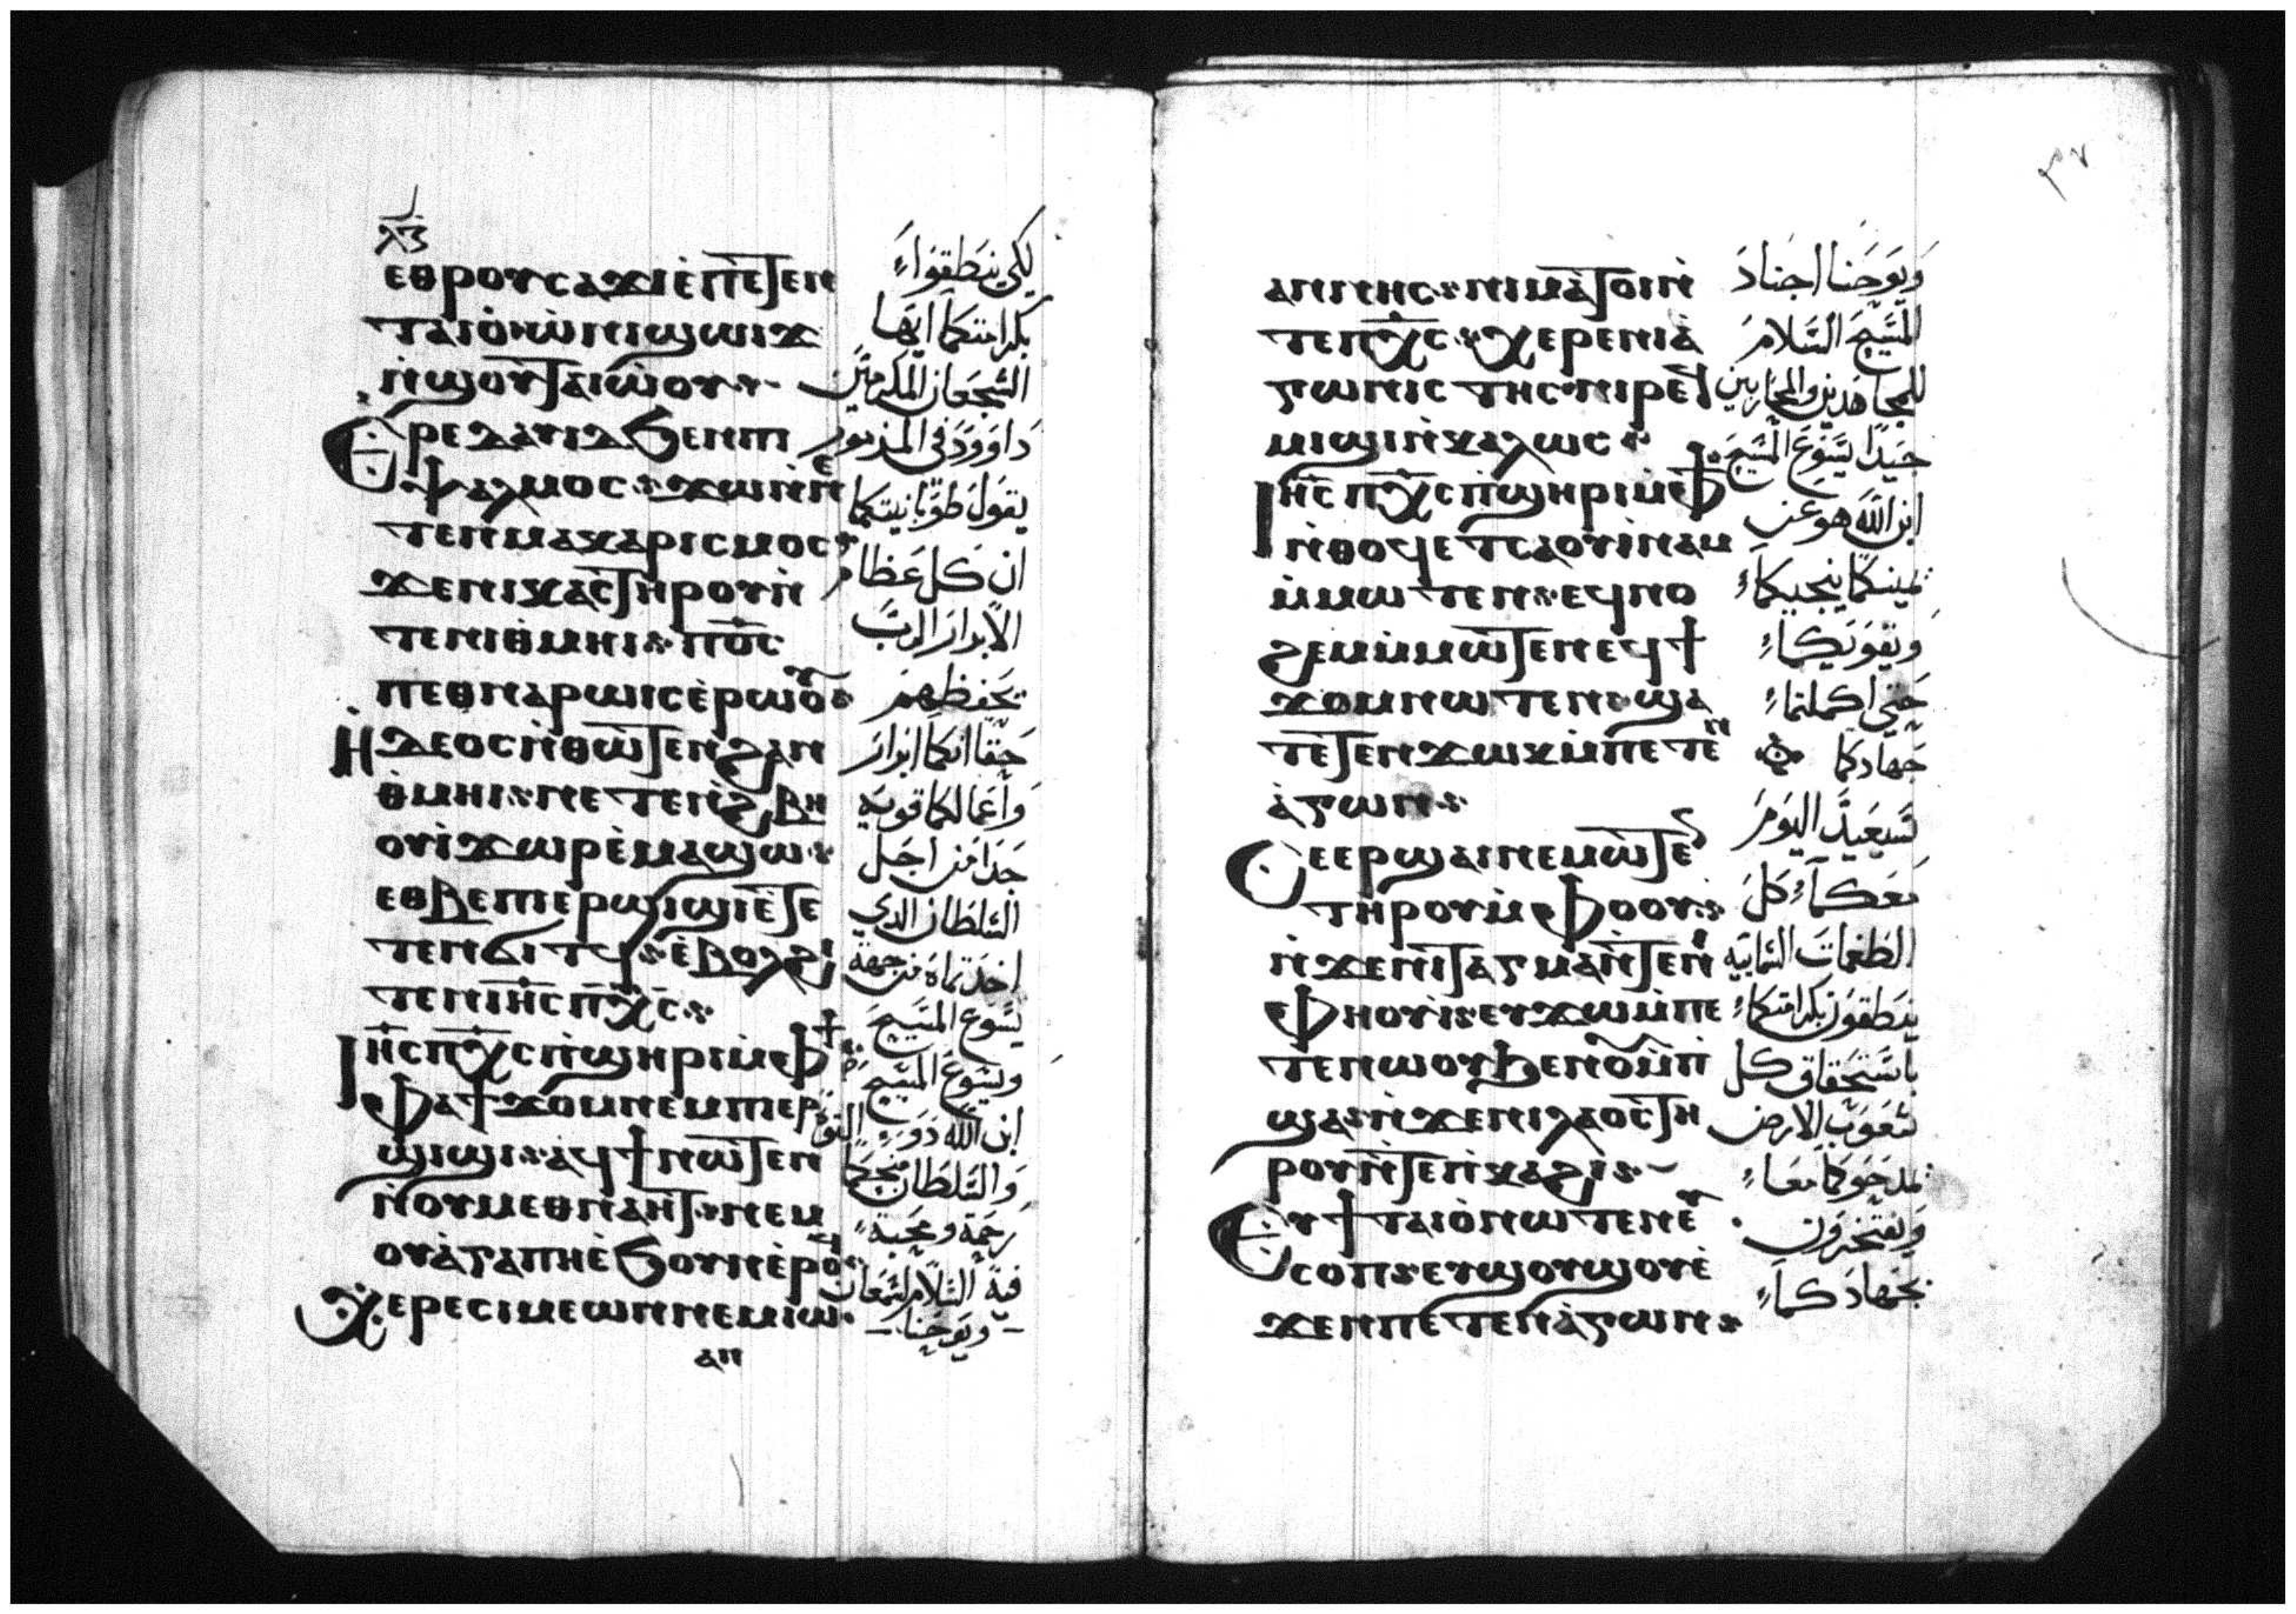 ⲗⲍ
ⲉⲑⲣⲟⲩⲥⲁϫⲓⲉ̀ⲡⲉⲧⲉⲛ
ⲧⲁⲓⲟ̀ⲛⲓϣⲱⲓϫ
ⲛ̀ϣⲟⲩⲧⲁⲓⲱ̀ⲟⲩ
Ⲉⲣⲉⲇⲁⲩⲓⲇϧⲉⲛⲡⲓ
ⲯⲁⲗⲙⲟⲥ ϫⲱⲛ̀ⲡⲉ
ⲧⲉⲛⲙⲁⲕⲁⲣⲓⲥⲙⲟⲥ
ϫⲉⲛⲓⲕⲁⲥⲧⲏⲣⲟⲩⲛ̀
ⲧⲉⲛⲓⲑⲙⲏⲓ ⲡⲟ̅ⲥ̅
ⲡⲉⲑⲛⲁⲣⲱⲓⲥⲉ̀ⲣⲱⲟⲩ
Ⲏⲇⲉⲟⲥⲛ̀ⲑⲱⲧⲉⲛϩⲁⲛ
ⲑ̀ⲙⲏⲓ ⲛⲉⲧⲉⲛϩ̀ⲃⲏ
ⲟⲩⲓ̀ϫⲱⲣⲉ̀ⲙⲁϣⲱ
ⲉⲑⲃⲉⲡⲓⲉⲣϣⲓϣⲓⲉ̀ⲧⲉ
ⲧⲉⲛϭⲓⲧϥ ⲉ̀ⲃⲟⲗϩⲓ
ⲧⲉⲛⲓⲏ̅ⲥ̅ⲡⲭ̅ⲥ̅
Ⲓⲏ̅ⲥ̅ⲡⲭ̅ⲥ̅ⲡ̀ϣⲏⲣⲓⲙ̀ⲫϯ
ⲫⲁϯϫⲟⲙⲛⲉⲙⲡⲓⲉⲣ
ϣⲓϣⲓ ⲁ̀ϥϯⲛⲱⲧⲉⲛ
ⲛ̀ⲟⲩⲙⲉⲑⲛⲁⲏⲧ ⲛⲉⲙ
ⲟⲩⲁ̀ⲅⲁⲡⲏⲉ̀ϧⲟⲩⲛⲉ̀ⲣⲟϥ
Ⲭⲉⲣⲉⲥⲓⲙⲉⲱⲛⲛⲉⲙⲓⲱ
ⲁⲛ
لكي ينطقوا
بكرامتكما ايها
الشجعان المكرمين
داوود في المزمور
يقول طوبانيتكما
ان كل عظام
الابرار الرب
يحفظهم
حقا انكما ابرار
واعمالكما قويه
جدا من اجل
السلطان الدي
اخدتماه من جهة
يسوع المسيح
ويسوع المسيح
ابن الله دو القوة
والسلطان منحكما
رحمة ومحبة
فيه السلام لسمعان
ويوحنا
٣٧
ⲁⲛⲛⲏⲥ ⲛⲓⲙⲁⲧⲟⲓⲛ̀
ⲧⲉⲡⲭ̅ⲥ̅ ⲭⲉⲣⲉⲛⲓⲁ̀
ⲅⲱⲛⲓⲥⲧⲏⲥ ⲛⲓⲣⲉϥ
ⲙⲓϣⲓⲛ̀ⲕⲁⲗⲱⲥ
Ⲓⲏ̅ⲥ̅ⲡⲭ̅ⲥ̅ⲡ̀ϣⲏⲣⲓⲙ̀ⲫϯ
ⲛ̀ⲑⲟϥⲉⲧⲥⲁⲟⲩⲓ̀ⲛⲁⲙ
ⲙ̀ⲙⲱⲧⲉⲛ ⲉϥⲛⲟ
ϩⲉⲙⲙ̀ⲙⲱⲧⲉⲛⲉϥϯ
ϫⲟⲙⲛⲱⲧⲉⲛ ϣⲁ
ⲧⲉⲧⲉⲛϫⲱⲕⲙ̀ⲡⲉⲧⲉⲛ
ⲁ̀ⲅⲱⲛ
Ⲥⲉⲉⲣϣⲁⲓⲛⲉⲙⲱⲧⲉ
ⲧⲏⲣⲟⲩⲙ̀ⲫⲟⲟⲩ
ⲛ̀ϫⲉⲛⲓⲧⲁⲅⲙⲁⲛ̀ⲧⲉⲛⲓ
ⲫⲏⲟⲩⲓ̀ ⲉⲩϫⲱⲙ̀ⲡⲉ
ⲧⲉⲛⲱⲟⲩϧⲉⲛⲟⲩⲙ̀ⲡ̀
ϣⲁ ⲛ̀ϫⲉⲛⲓⲗⲁⲟⲥⲧⲏ
ⲣⲟⲩⲛ̀ⲧⲉⲛ̀ⲕⲁϩⲓ
Ⲉⲩϯⲧⲁⲓⲟ̀ⲛⲱⲧⲉⲛⲉⲩ
ⲥⲟⲡ ⲉⲩϣⲟⲩϣⲟⲩⲉ̀
ϫⲉⲛⲡⲉⲧⲉⲛⲁ̀ⲅⲱⲛ
ويوحنا اجناد
المسيح السلام
للمجاهدين والمحاربين
جيدا يسوع المسيح
ابن الله هو عن
يمينكما ينجيكما
ويقويكما
حتي اكملتما
جهادكما
تعيد اليوم
معكما كل
الطغمات السمائيه
ينطقون بكرامتكما
باستحقاق كل
شعوب الارض
يمدحوكما معا
ويفتخرون
بجهادكما